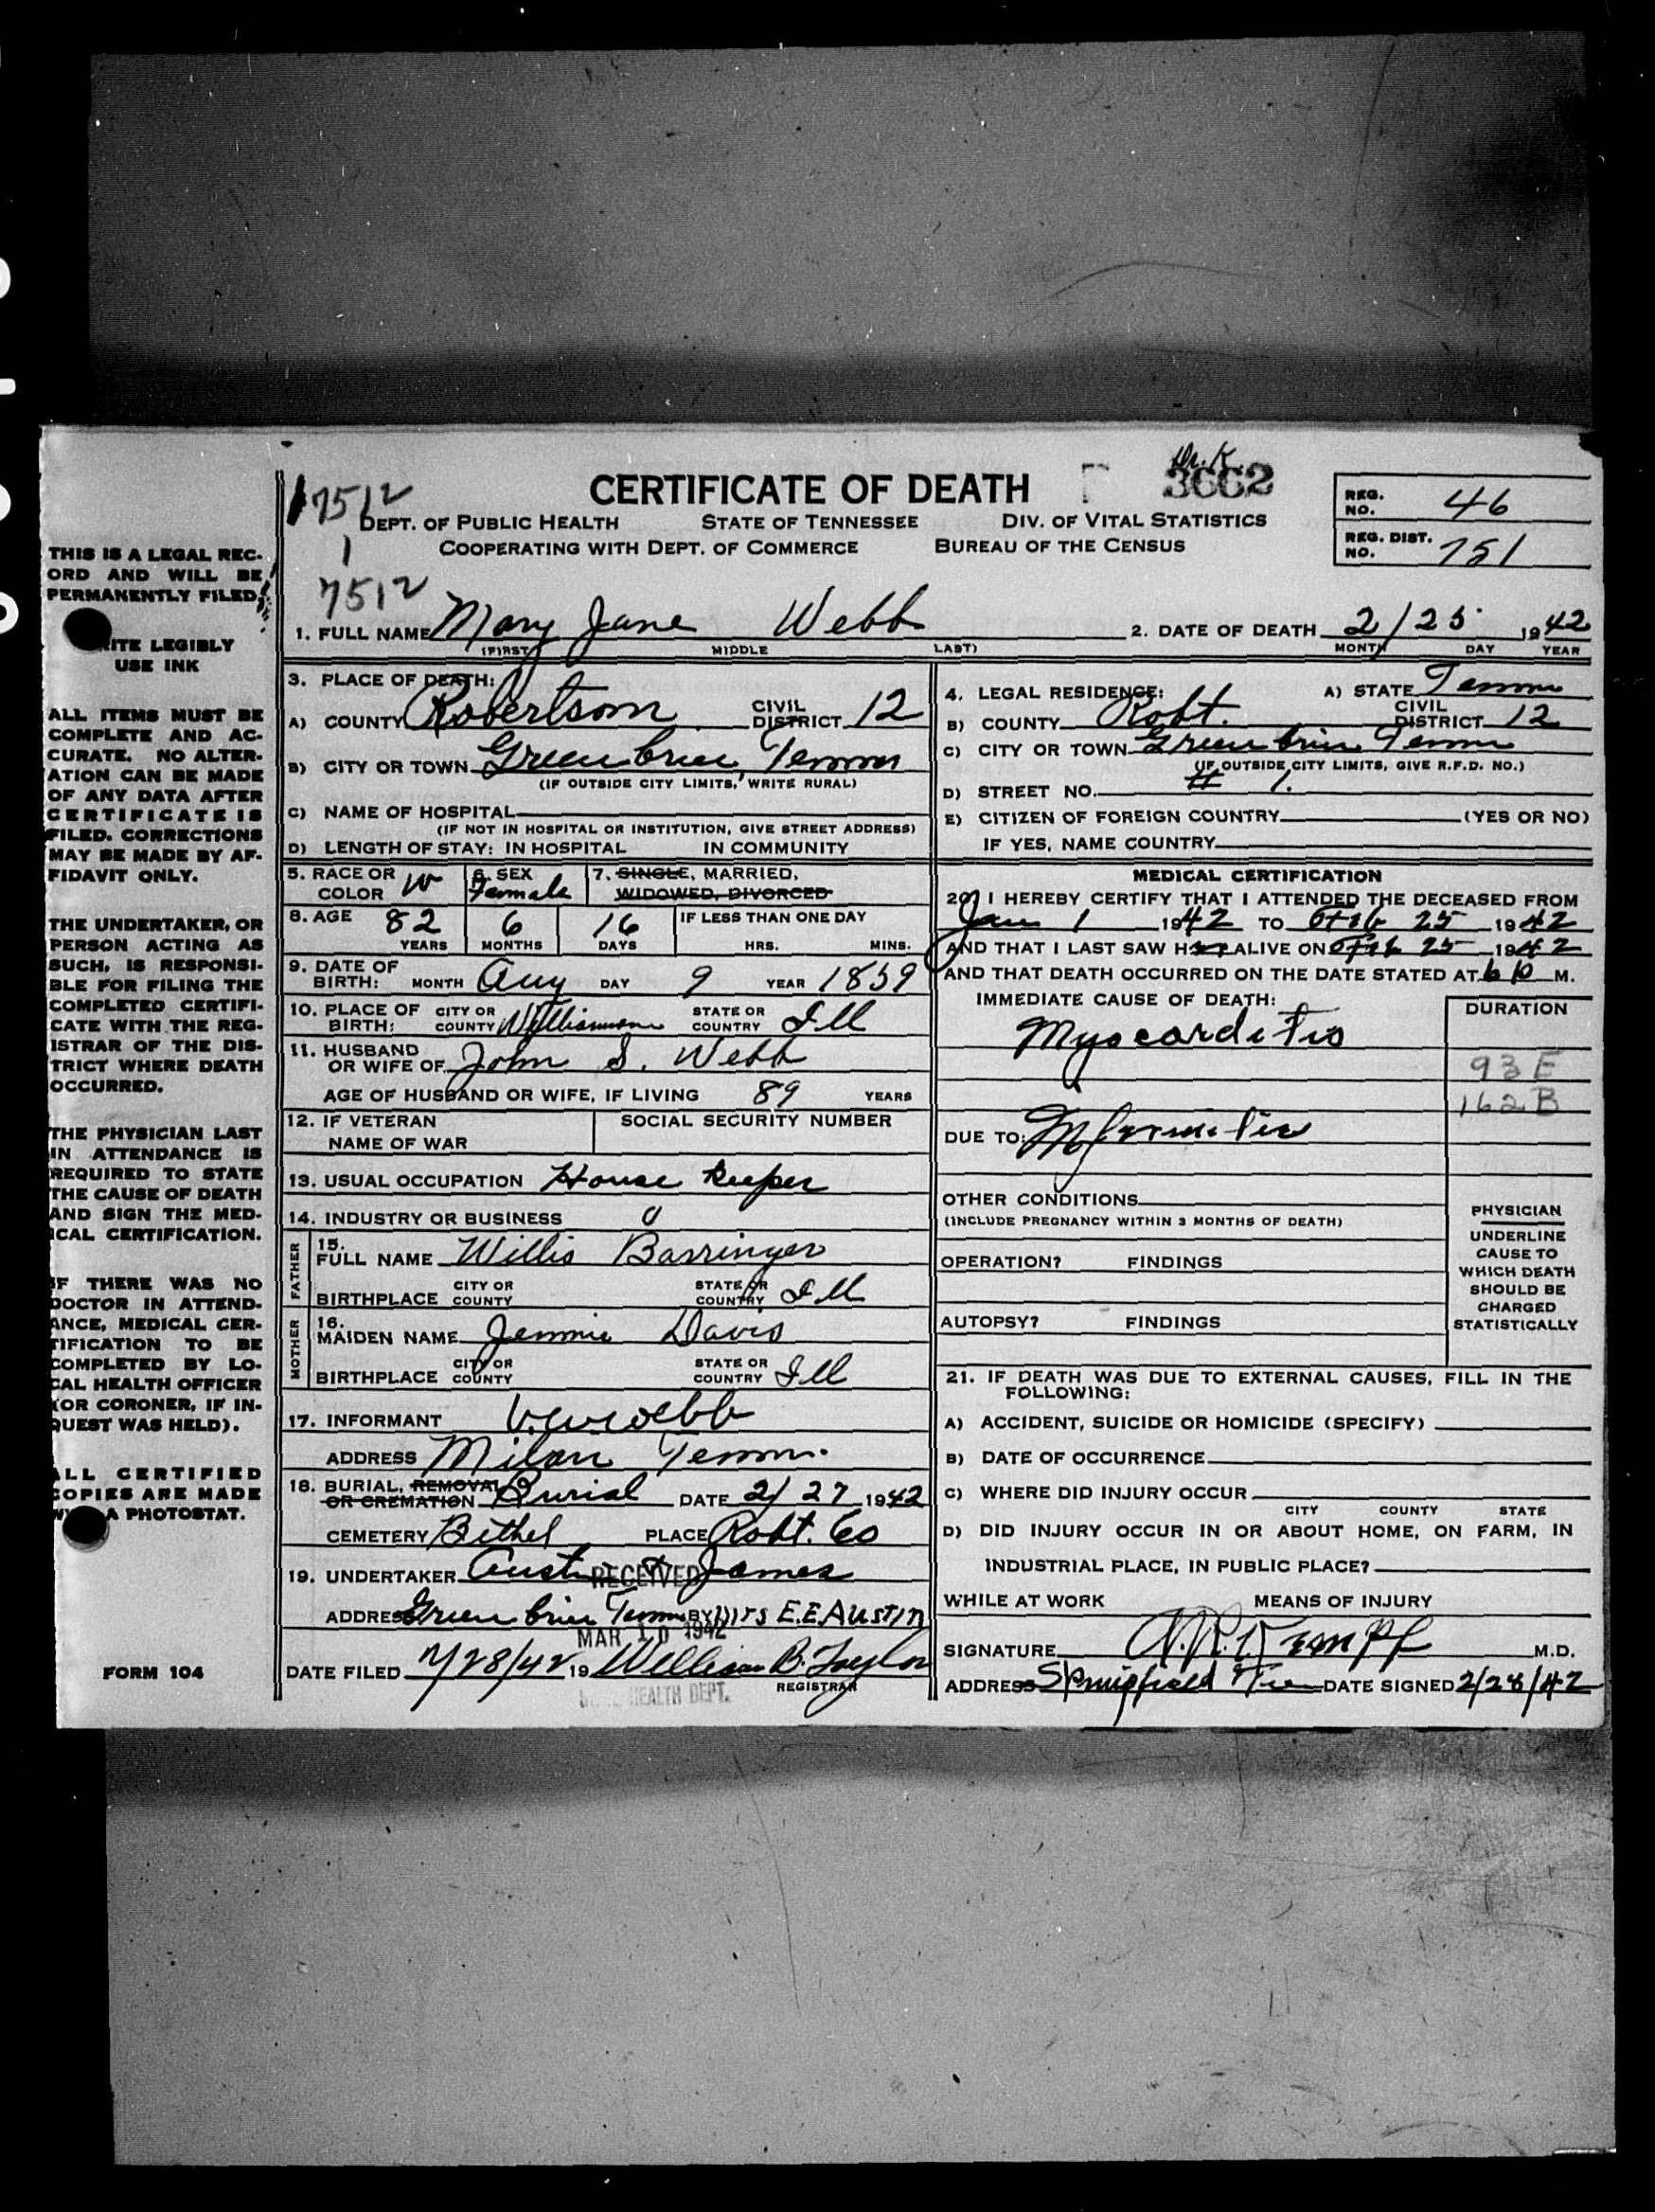 Dr. K.
3662
7512
CERTIFICATE OF DEATH
DEPT. OF PUBLIC HEALTH STATE OF TENNESSEE DIV. OF VITAL STATISTICS
COOPERATING WITH DEPT. OF COMMERCE BUREAU OF THE CENSUS
REG. NO. 46
REG. DIST. NO. 751
1
7512
1. FULL NAME Mary Jane Webb 2. DATE OF DEATH 2/25 1942
(FIRST MIDDLE LAST) MONTH DAY YEAR
3. PLACE OF DEATH:
A) COUNTY Robertson CIVIL DISTRICT 12
B) CITY OR TOWN Greenbrier Tenn
(IF OUTSIDE CITY LIMITS, WRITE RURAL)
C) NAME OF HOSPITAL
(IF NOT IN HOSPITAL OR INSTITUTION, GIVE STREET ADDRESS)
D) LENGTH OF STAY: IN HOSPITAL IN COMMUNITY
4. LEGAL RESIDENCE: A) STATE Tenn
B) COUNTY Robt. CIVIL DISTRICT 12
C) CITY OR TOWN Greenbrier Tenn
(IF OUTSIDE CITY LIMITS, GIVE R.F.D. NO.)
D) STREET NO. # 1.
E) CITIZEN OF FOREIGN COUNTRY (YES OR NO)
IF YES, NAME COUNTRY
5. RACE OR COLOR W 6. SEX Female 7. SINGLE, MARRIED, WIDOWED, DIVORCED
8. AGE 82 6 16 IF LESS THAN ONE DAY
YEARS MONTHS DAYS HRS. MINS.
9. DATE OF BIRTH: MONTH Aug DAY 9 YEAR 1859
10. PLACE OF BIRTH: CITY OR COUNTY Williamson STATE OR COUNTRY Ill
11. HUSBAND OR WIFE OF John S. Webb
AGE OF HUSBAND OR WIFE, IF LIVING 89 YEARS
12. IF VETERAN NAME OF WAR SOCIAL SECURITY NUMBER
13. USUAL OCCUPATION House Keeper
14. INDUSTRY OR BUSINESS
FATHER
15. FULL NAME Willis Barringer
BIRTHPLACE CITY OR COUNTY STATE OR COUNTRY Ill
MOTHER
16. MAIDEN NAME Jennie Davis
BIRTHPLACE CITY OR COUNTY STATE OR COUNTRY Ill
17. INFORMANT V.W. Webb
ADDRESS Milan Tenn.
18. BURIAL, REMOVAL OR CREMATION Burial DATE 2/27 1942
CEMETERY Bethel PLACE Robt. Co
19. UNDERTAKER Austin & James
RECEIVED
ADDRESS Greenbrier Tenn BY Mrs E.E. AUSTIN
MAR 10 1942
DATE FILED 2/28/42 19 William B. Taylor
REGISTRAR
HEALTH DEPT.
MEDICAL CERTIFICATION
20. I HEREBY CERTIFY THAT I ATTENDED THE DECEASED FROM
Jan 1 1942 TO Feb 25 1942
AND THAT I LAST SAW HER ALIVE ON Feb 25 1942
AND THAT DEATH OCCURRED ON THE DATE STATED AT 6 P M.
IMMEDIATE CAUSE OF DEATH: DURATION
Myocarditis
93E
162B
DUE TO:
OTHER CONDITIONS
(INCLUDE PREGNANCY WITHIN 3 MONTHS OF DEATH)
OPERATION? FINDINGS
AUTOPSY? FINDINGS
PHYSICIAN
UNDERLINE
CAUSE TO
WHICH DEATH
SHOULD BE
CHARGED
STATISTICALLY
21. IF DEATH WAS DUE TO EXTERNAL CAUSES, FILL IN THE
FOLLOWING:
A) ACCIDENT, SUICIDE OR HOMICIDE (SPECIFY)
B) DATE OF OCCURRENCE
C) WHERE DID INJURY OCCUR
CITY COUNTY STATE
D) DID INJURY OCCUR IN OR ABOUT HOME, ON FARM, IN
INDUSTRIAL PLACE, IN PUBLIC PLACE?
WHILE AT WORK MEANS OF INJURY
SIGNATURE Kempf M.D.
ADDRESS Springfield Tenn DATE SIGNED 2/28/42
THIS IS A LEGAL REC-
ORD AND WILL BE
PERMANENTLY FILED.
ITE LEGIBLY
USE INK
ALL ITEMS MUST BE
COMPLETE AND AC-
CURATE. NO ALTER-
ATION CAN BE MADE
OF ANY DATA AFTER
CERTIFICATE IS
FILED. CORRECTIONS
MAY BE MADE BY AF-
FIDAVIT ONLY.
THE UNDERTAKER, OR
PERSON ACTING AS
SUCH, IS RESPONSI-
BLE FOR FILING THE
COMPLETED CERTIFI-
CATE WITH THE REG-
ISTRAR OF THE DIS-
TRICT WHERE DEATH
OCCURRED.
THE PHYSICIAN LAST
IN ATTENDANCE IS
REQUIRED TO STATE
THE CAUSE OF DEATH
AND SIGN THE MED-
ICAL CERTIFICATION.
IF THERE WAS NO
DOCTOR IN ATTEND-
ANCE, MEDICAL CER-
TIFICATION TO BE
COMPLETED BY LO-
CAL HEALTH OFFICER
(OR CORONER, IF IN-
QUEST WAS HELD).
ALL CERTIFIED
COPIES ARE MADE
A PHOTOSTAT.
FORM 104